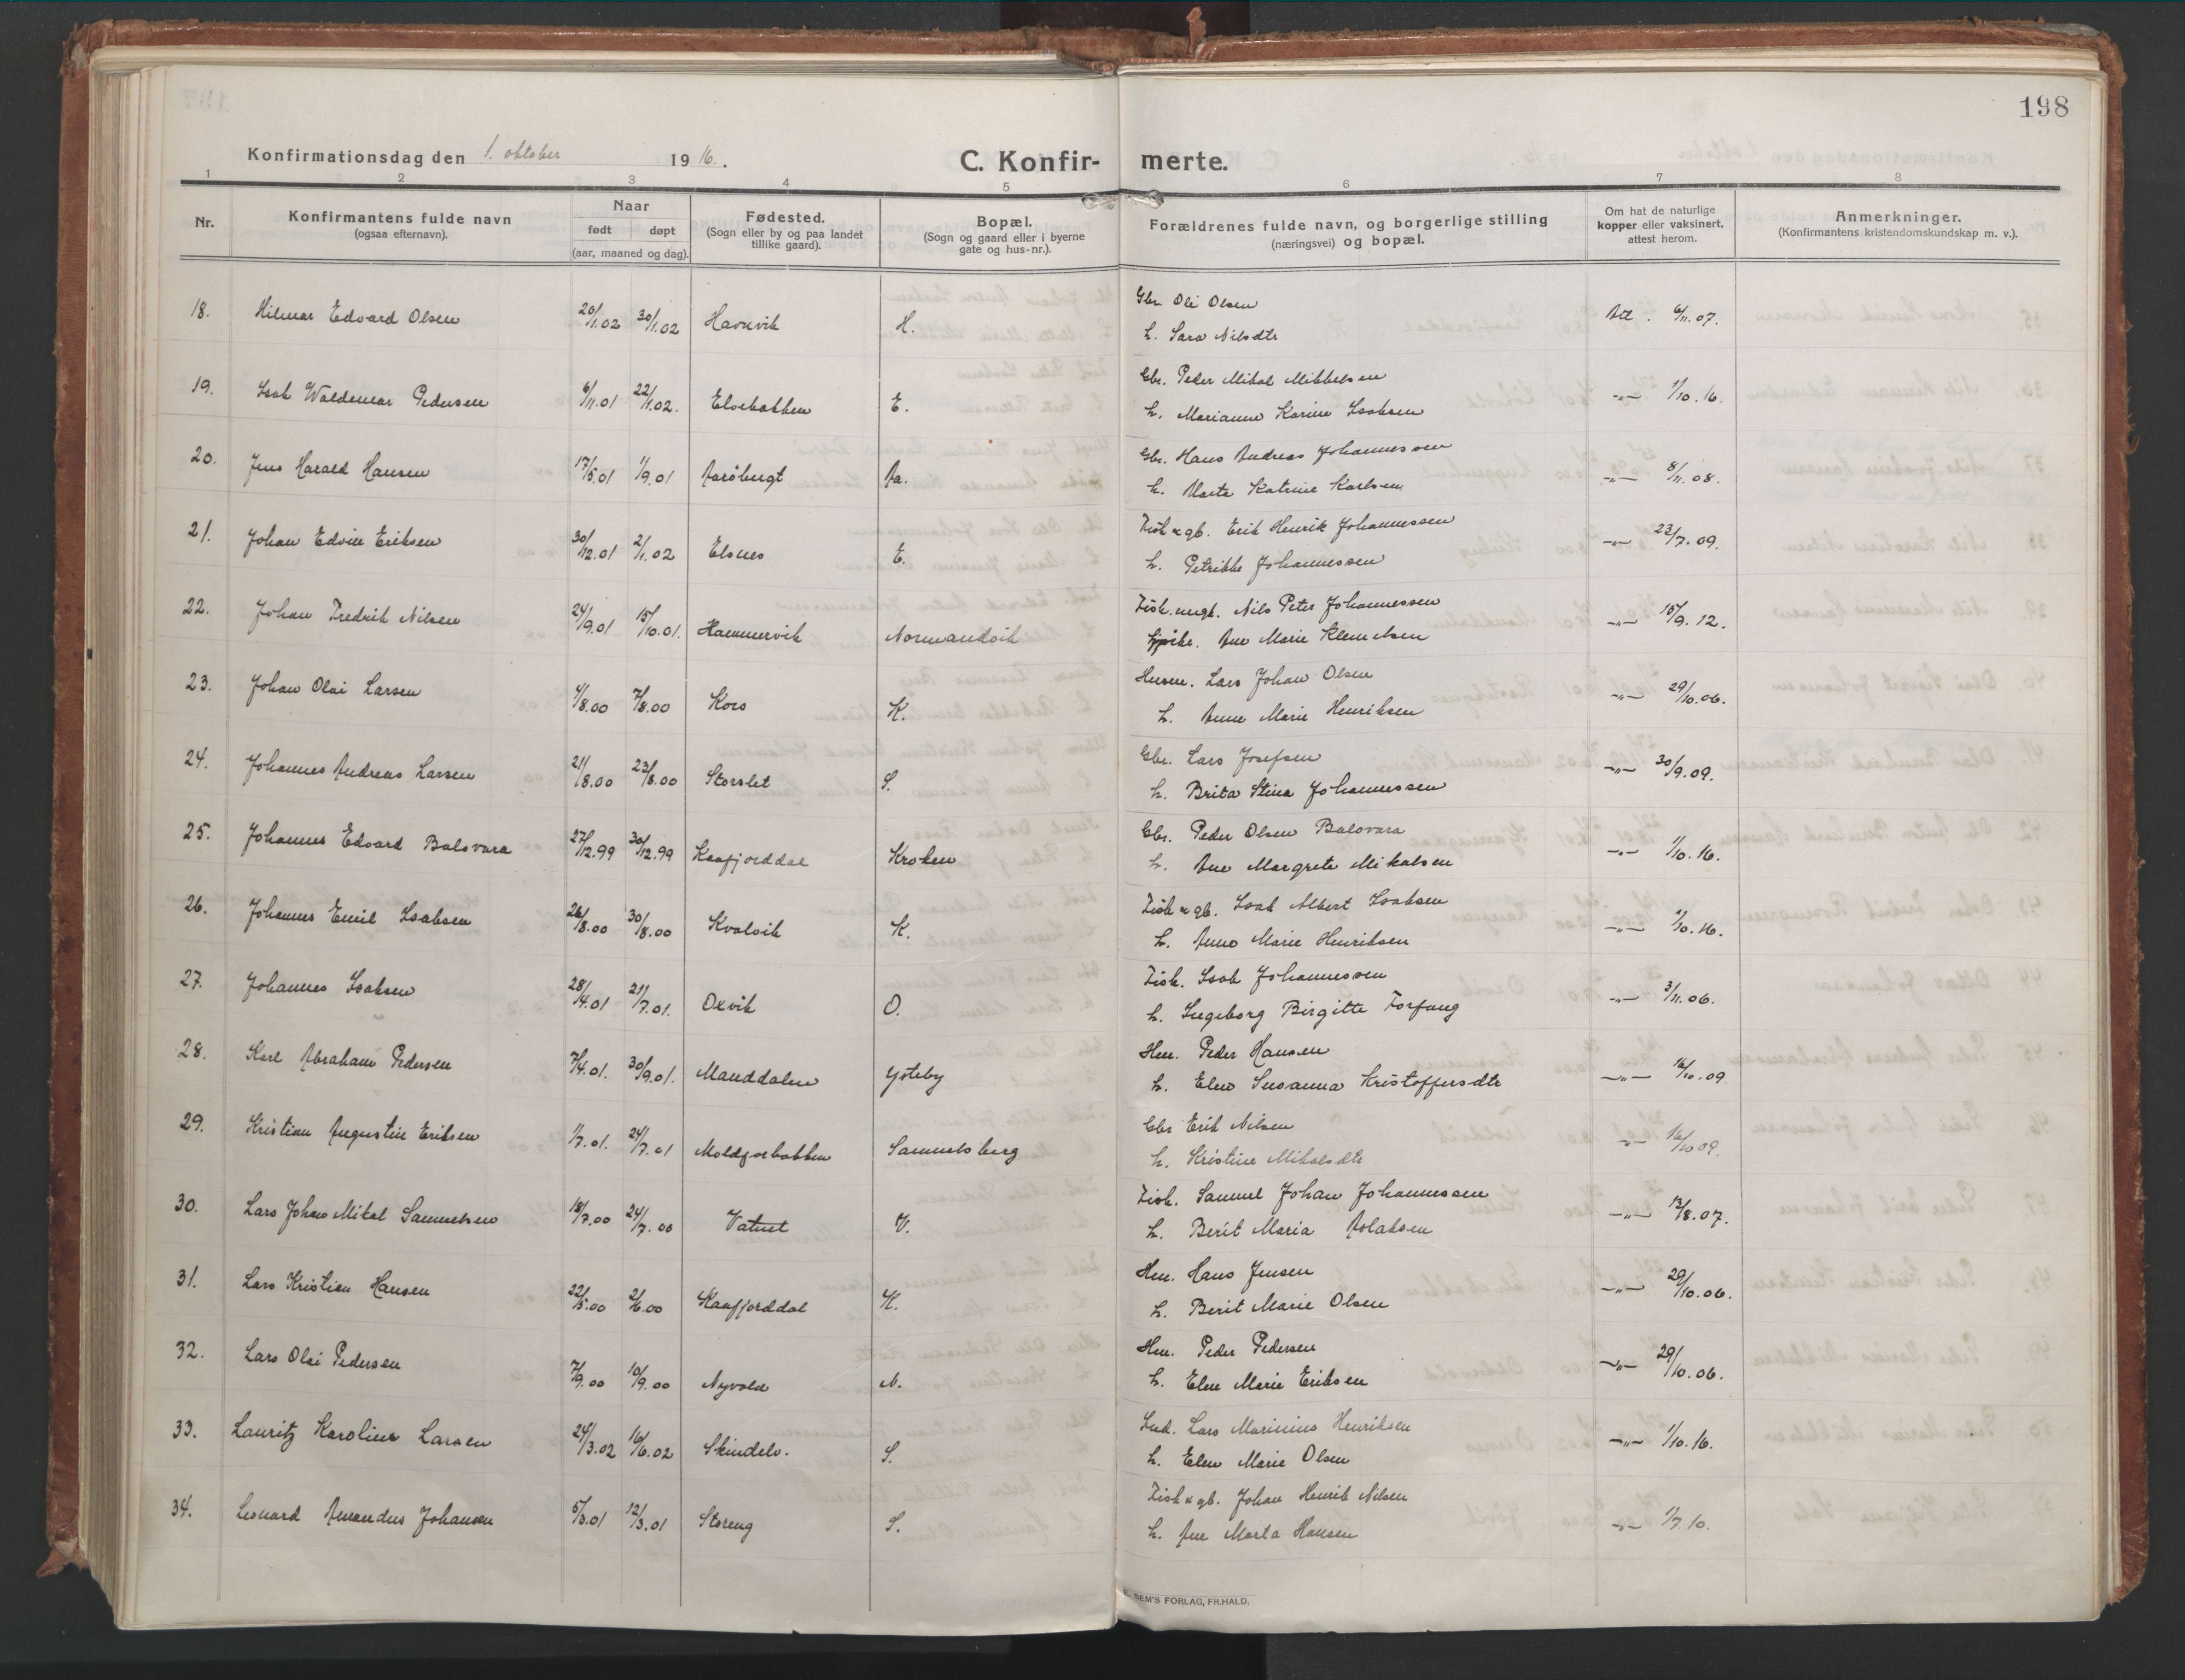 198
Konfirmationsdag den 1. oktober 1916.
C. Konfir- merte.
1 2 3 4 5 6 7 8
Nr. Konfirmantens fulde navn (ogsaa efternavn). Naar født døpt (aar, maaned og dag). Fødested. (Sogn eller by og paa landet tillike gaard). Bopæl. (Sogn og gaard eller i byerne gate og hus-nr.). Forældrenes fulde navn, og borgerlige stilling (næringsvei) og bopæl. Om hat de naturlige kopper eller vaksinert, attest herom. Anmerkninger. (Konfirmantens kristendomskundskap m. v.).
18. Hilmar Edvard Olsen 20/1.02 30/1.02 Havnvik H. Gbr. Ole Olsen
h. Sara Nilsdtr Att. 6/11.07.
19. Isak Waldemar Pedersen 6/11.01 22/1.02. Elvebakken E. Gbr. Peder Mikal Mikkelsen
h. Marianne Karine Isaksen -"- 1/10.16.
20. Jens Harald Hansen 17/5.01 1/9.01 Aarøbugt Aa. Gbr. Hans Andreas Johannessen
h. Marta Katrine Karlsen -"- 8/11.08.
21. Johan Edvin Eriksen 30/12.01 2/1.02 Elsnes E. Fisk & gb. Erik Henrik Johannessen
h. Petrikke Johannessen -"- 23/7.09.
22. Johan Fredrik Nilsen 24/9.01 15/10.01. Hammervik Normandvik Fisk. ungk. Nils Peter Johannessen
pike. Ane Marie Klemetsen -"- 15/9.12.
23. Johan Olai Larsen 4/8.00 7/8.00 Kors K. Husm. Lars Johan Olsen
h. Anne Marie Henriksen -"- 29/10.06.
24. Johannes Andreas Larsen 21/8.00 23/8.00 Storslet S. Gbr. Lars Josefsen
h. Brita Stina Johannessen -"- 30/9.09.
25. Johannes Edvard Balsvara 27/12.99 30/12.99 Kaafjorddal Kroken Gbr. Peder Olsen Balsvara
h. Ane Margrete Mikalsen -"- 1/10.16.
26. Johannes Emil Isaksen 26/8.00 30/8.00 Kvalvik K. Fisk & gb. Isak Albert Isaksen
h. Anne Marie Henriksen -"- 1/10.16.
27. Johannes Isaksen 28/4.01 21/7.01. Oxvik O. Fisk. Isak Johannessen
h. Ingeborg Birgitte Forfang -"- 3/11.06.
28. Karl Abraham Pedersen 7/4.01. 30/9.01. Manddalen Ysteby Hm. Peder Hansen
h. Elen Susanna Kristoffersdtr -"- 16/10.09.
29. Kristian Augustin Eriksen 1/7.01. 24/7.01 Moldforbakken Samuelsberg Gbr Erik Nilsen
h. Kristine Mikalsdtr -"- 16/10 09.
30. Lars Johan Mikal Samuelsen 18/7.00 24/7.00 Vatnet V. Fisk. Samuel Johan Johannessen
h. Berit Maria Aslaksen -"- 13/8.07.
31. Lars Kristian Hansen 22/5.00 2/6.00 Kaafjorddal K. Hm. Hans Jensen
h. Berit Marie Olsen -"- 29/10.06.
32. Lars Olai Pedersen 7/9.00 10/9.00 Nyvold N. Hm. Peder Pedersen
h. Elen Marie Eriksen -"- 29/10.06.
33. Lauritz Karolius Larsen 24/3.02 16/6.02 Skindelv. S. Ind. Lars Marinius Henriksen
h. Elen Marie Olsen -"- 1/10.16.
34. Leonard Amandus Johansen 5/3.01 12/3.01 Storeng S. Fisk & gb. Johan Henrik Nilsen
h. Ane Marta Hansen -"- 1/7.10.
SEM'S FORLAG, FR.HALD.